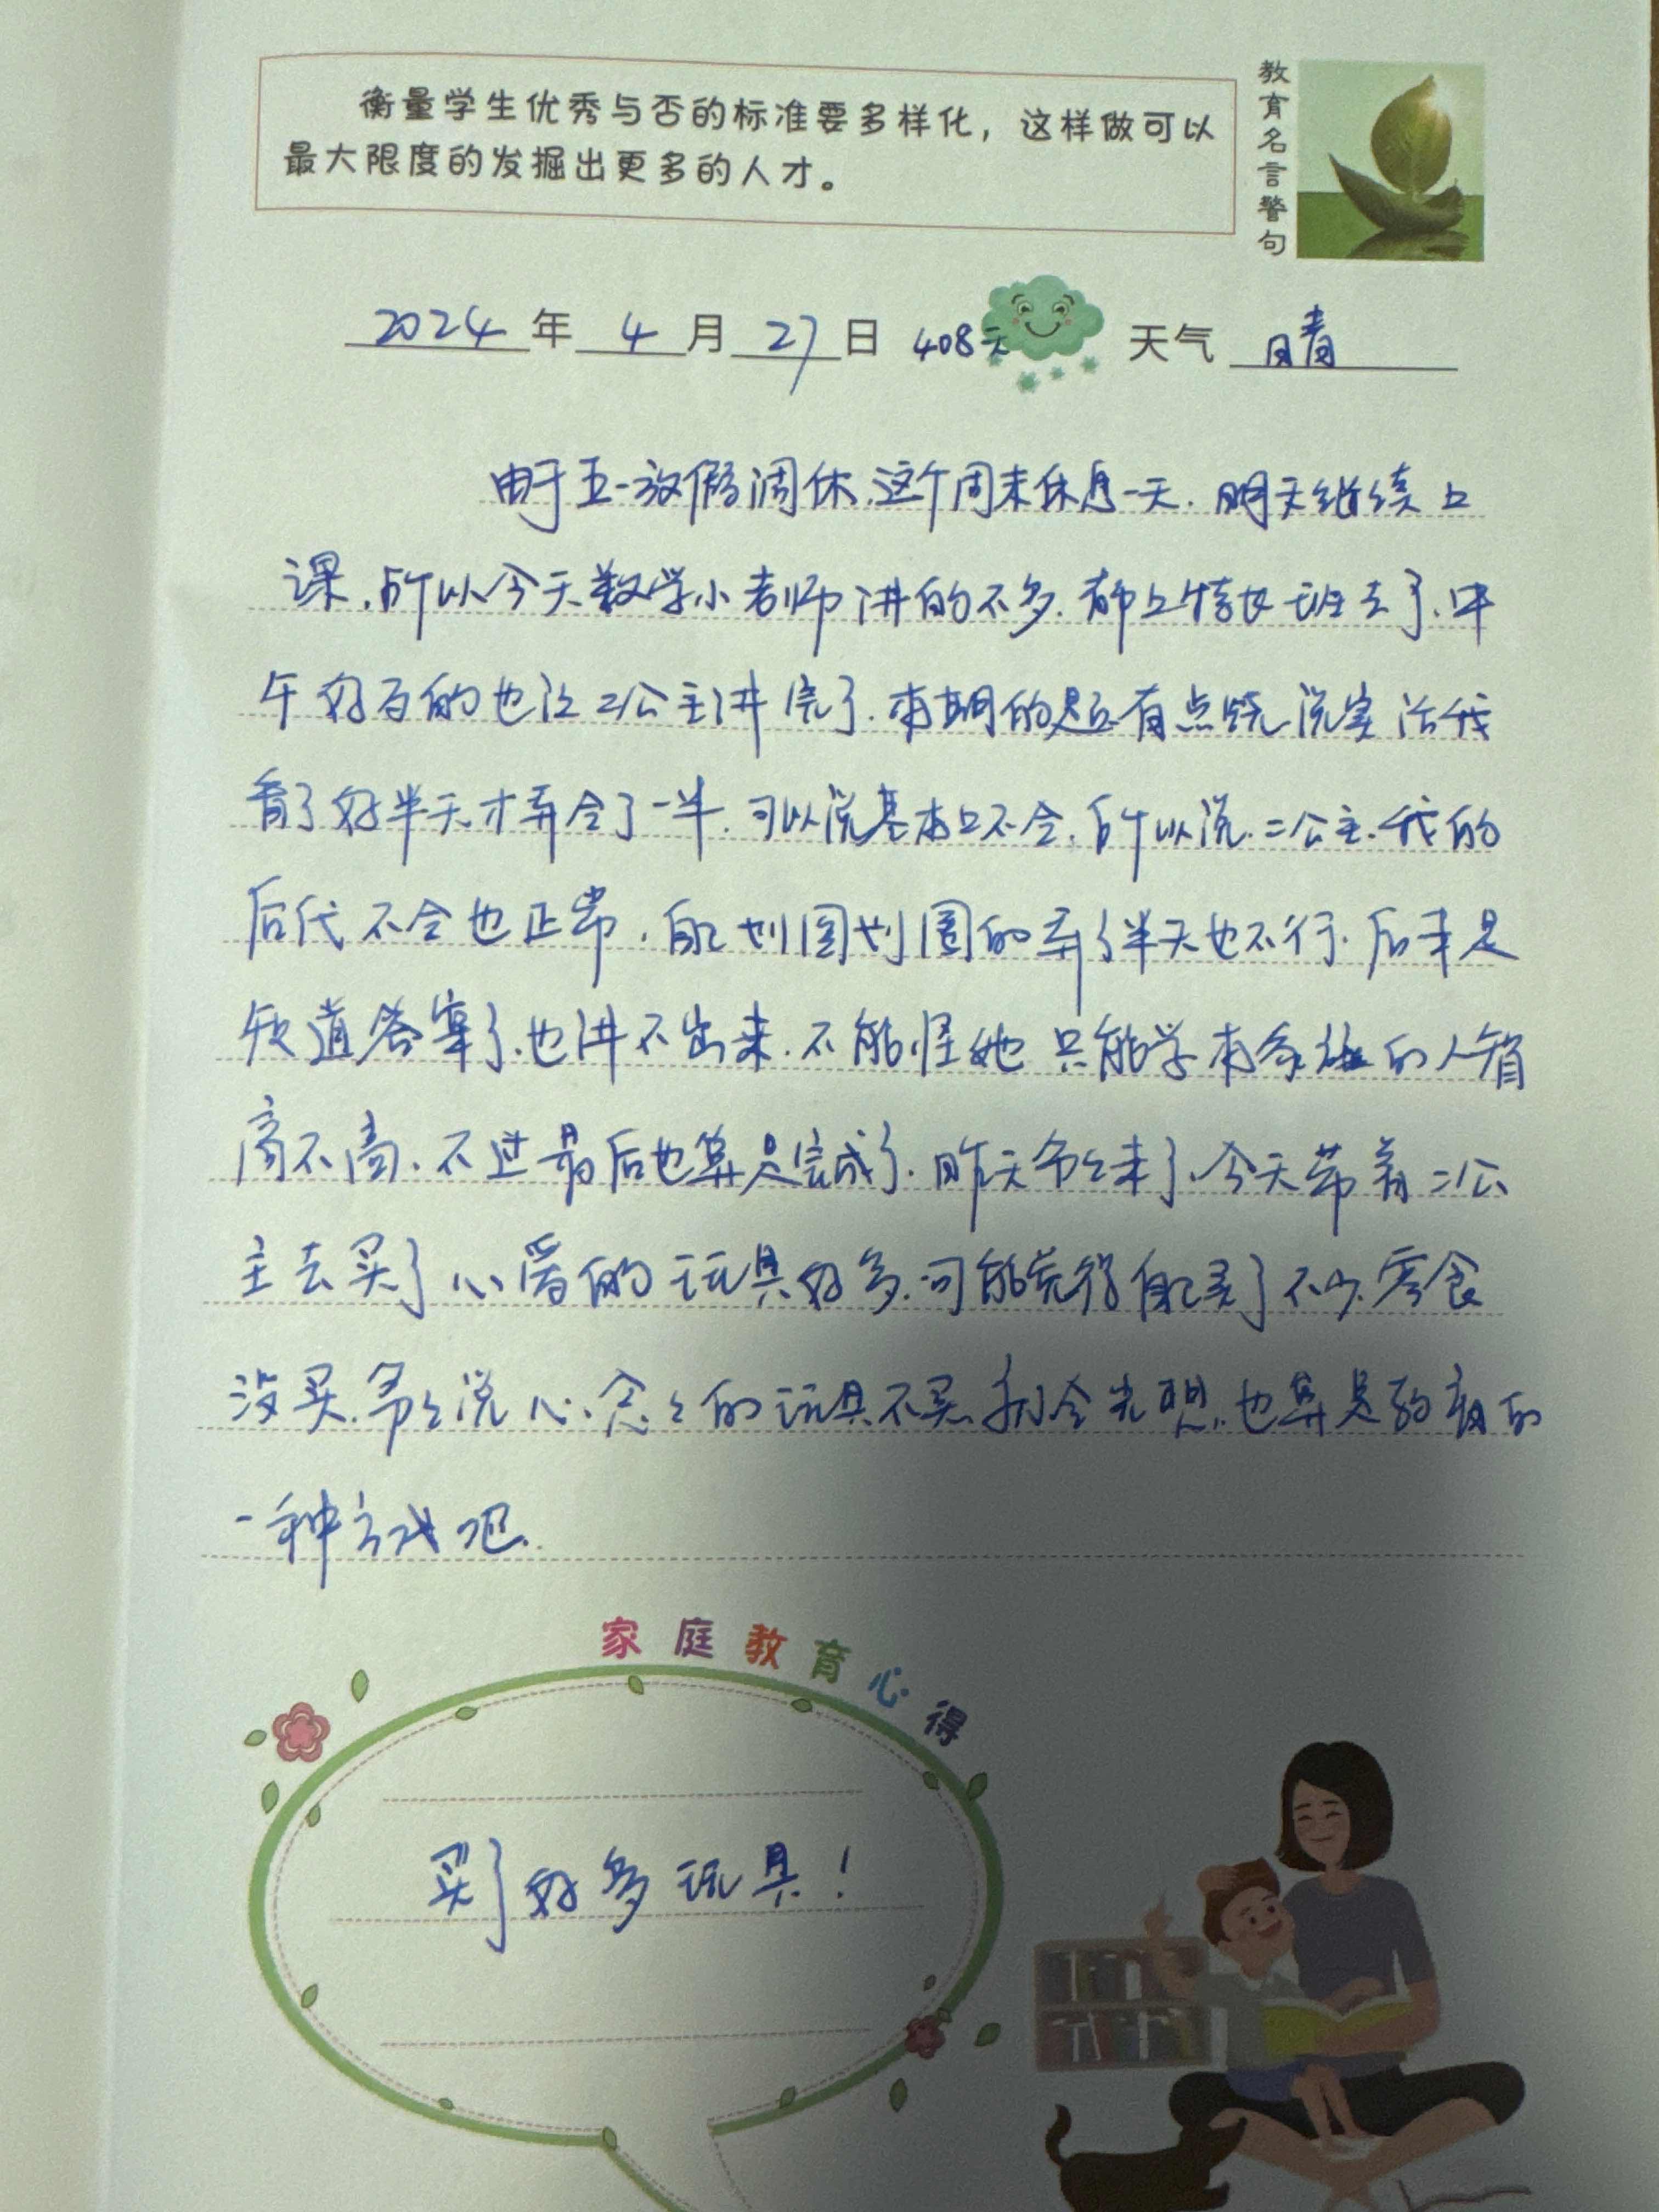 衡量学生优秀与否的标准要多样化，这样做可以
最大限度的发掘出更多的人才。
教育名言警句
2024年4月27日 408天 天气 晴
由于五一放假调休.这个周末休息一天.明天继续上
课.所以今天数学小老师讲的不多.都上特长班去了.中
午好百的也让二公主讲完了.本期的题有点绕.说实话我
看了好半天才弄会了一半.可以说基本上不会.所以说.二公主.我的
后代不会也正常.自己划圈划圈的弄了半天也不行.后来是
知道答案了.也讲不出来.不能怪她 只能学本家族的人智
商不高.不过最后也算是完成了.昨天爷爷来了.今天带着二公
主去买了心爱的玩具好多.可能觉得自己买了不少.零食
没买.爷爷说心心念念的玩具不买.我会光想.也算是的
一种方式吧.
家庭教育心得
买了好多玩具！